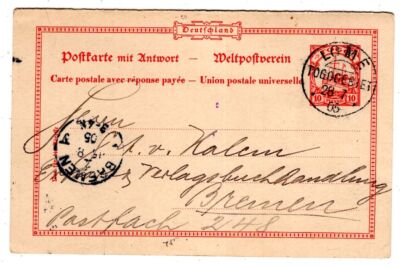 Deutschland
Postkarte mit Antwort – Weltpostverein
Carte postale avec réponse payée – Union postale universelle
LOME
TOGOGEBIET
05
10 10
Herrn
v. Halem
Export- & Verlagsbuchhandlung
Bremen
Postfach 248
BREMEN
05